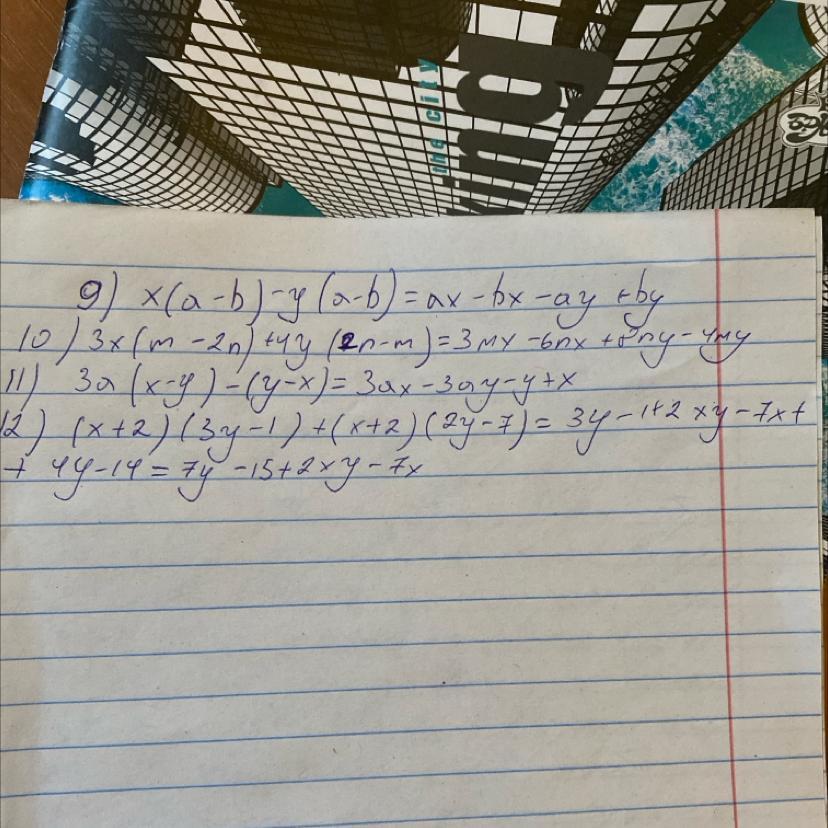 the city
king
9) x(a-b)-y(a-b)=ax-bx-ay+by
10) 3x(m-2n)+4y(2n-m)=3mx-6nx+8ny-4my
11) 3a(x-y)-(y-x)=3ax-3ay-y+x
12) (x+2)(3y-1)+(x+2)(2y-7)=3y-1+2xy-7x+
+4y-14=7y-15+2xy-7x